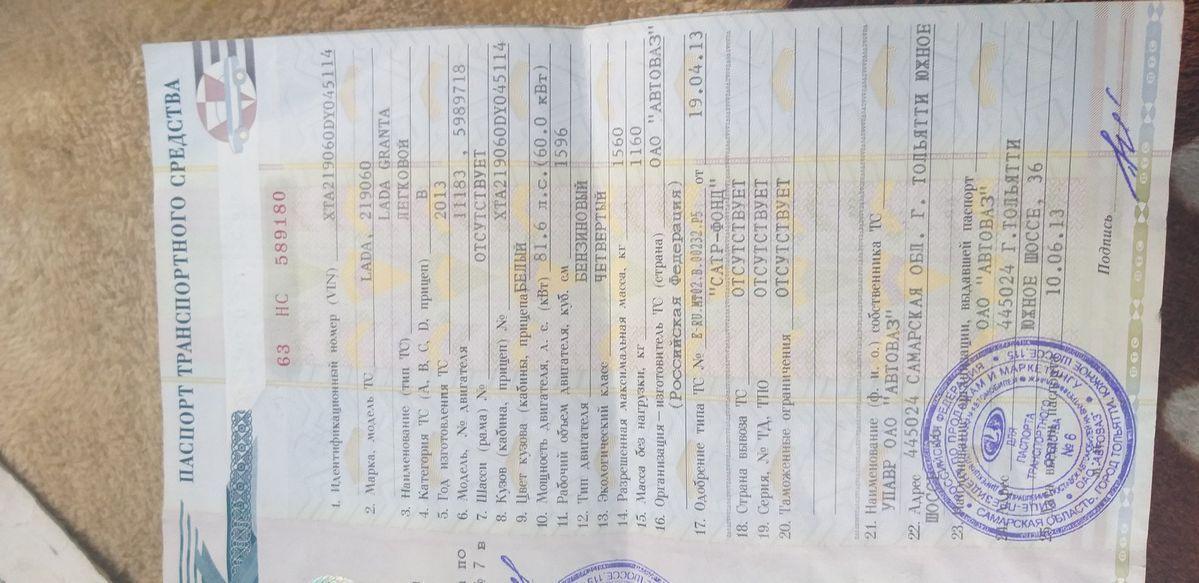 ПАСПОРТ ТРАНСПОРТНОГО СРЕДСТВА
63 НС 589180
1. Идентификационный номер (VIN) XTA219060DY045114
2. Марка, модель ТС LADA, 219060
LADA GRANTA
3. Наименование (тип ТС) ЛЕГКОВОЙ
4. Категория ТС (A, B, C, D, прицеп) B
5. Год изготовления ТС 2013
6. Модель, № двигателя 11183 , 5989718
7. Шасси (рама) № ОТСУТСТВУЕТ
8. Кузов (кабина, прицеп) № XTA219060DY045114
9. Цвет кузова (кабины, прицепа) БЕЛЫЙ
10. Мощность двигателя, л. с. (кВт) 81.6 л.с.(60.0 кВт)
11. Рабочий объем двигателя, куб. см 1596
12. Тип двигателя БЕНЗИНОВЫЙ
13. Экологический класс ЧЕТВЕРТЫЙ
14. Разрешенная максимальная масса, кг 1560
15. Масса без нагрузки, кг 1160
16. Организация—изготовитель ТС (страна) ОАО "АВТОВАЗ"
(Российская Федерация)
17. Одобрение типа ТС № E-RU.MT02.B.00232.P5 от 19.04.13
"САТР-ФОНД"
18. Страна вывоза ТС ОТСУТСТВУЕТ
19. Серия, № ТД, ТПО ОТСУТСТВУЕТ
20. Таможенные ограничения ОТСУТСТВУЕТ
21. Наименование (ф. и. о.) собственника ТС
УПАВР ОАО "АВТОВАЗ"
22. Адрес 445024 САМАРСКАЯ ОБЛ. Г. ТОЛЬЯТТИ ЮЖНОЕ
ШОССЕ
23. Наименование организации, выдавшей паспорт
ОАО "АВТОВАЗ"
24. Адрес 445024 Г.ТОЛЬЯТТИ
ЮЖНОЕ ШОССЕ, 36
10.06.13
Подпись
ДЛЯ
ПАСПОРТА
ТРАНСПОРТНОГО
СРЕДСТВА
№ 6
САМАРСКАЯ ОБЛАСТЬ, ГОРОД ТОЛЬЯТТИ, ЮЖНОЕ ШОССЕ, 115